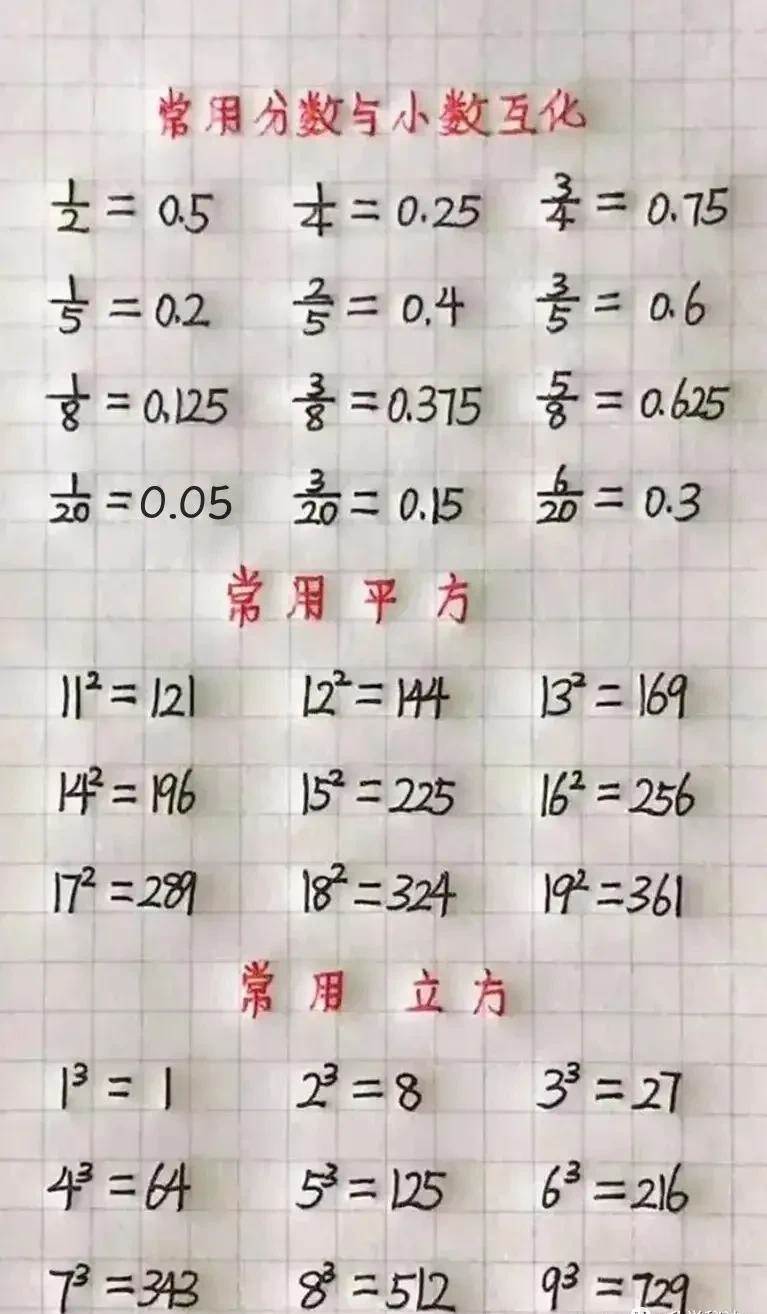 常用分数与小数互化
1/2 = 0.5 1/4 = 0.25 3/4 = 0.75
1/5 = 0.2 2/5 = 0.4 3/5 = 0.6
1/8 = 0.125 3/8 = 0.375 5/8 = 0.625
1/20 = 0.05 3/20 = 0.15 6/20 = 0.3
常用平方
11² = 121 12² = 144 13² = 169
14² = 196 15² = 225 16² = 256
17² = 289 18² = 324 19² = 361
常用 立方
1³ = 1 2³ = 8 3³ = 27
4³ = 64 5³ = 125 6³ = 216
7³ = 343 8³ = 512 9³ = 729